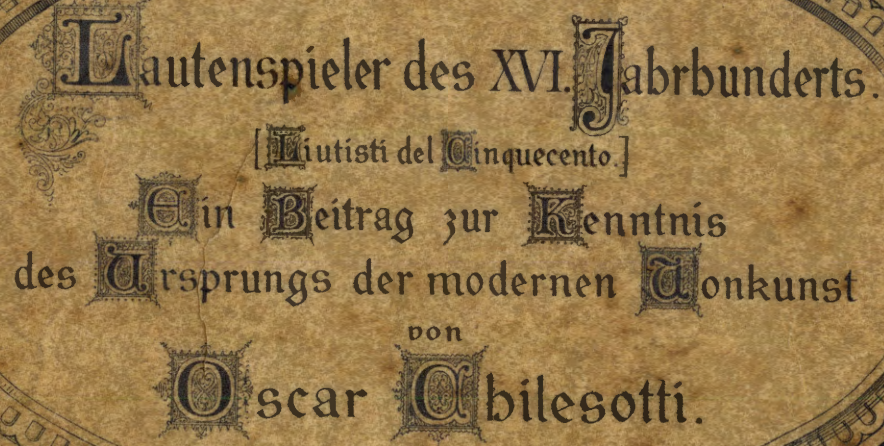 Lautenspieler des XVI. Jahrhunderts.
[Liutisti del Cinquecento.]
Ein Beitrag zur Kenntnis
des Ursprungs der modernen Tonkunst
von
Oscar Chilesotti.